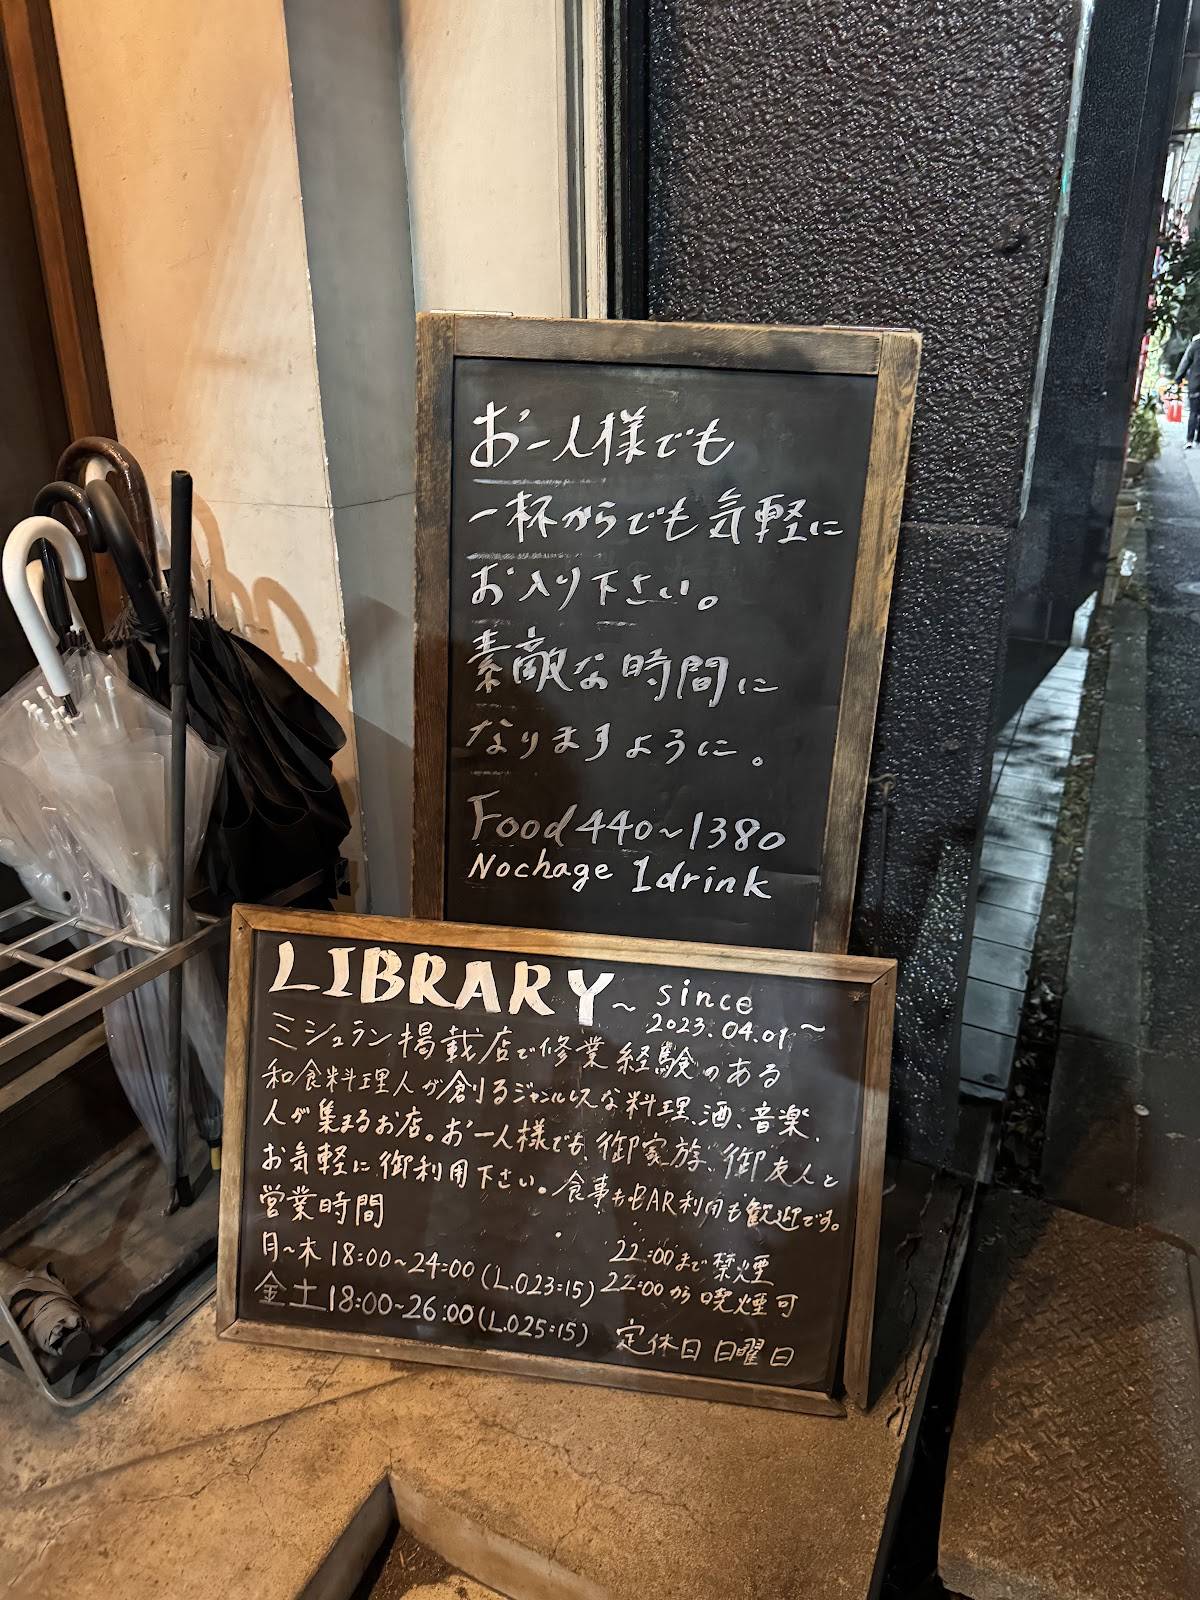 お一人様でも
一杯からでも気軽に
お入り下さい。
素敵な時間に
なりますように。
Food 440~1380
Nochage 1drink
LIBRARY~ since
2023.04.01~
ミシュラン掲載店で修業経験のある
和食料理人が創るジャンルレスな料理、酒、音楽、
人が集まるお店。お一人様でも、御家族、御友人と
お気軽に御利用下さい。食事もBAR利用も歓迎です。
営業時間
月~木 18:00~24:00 (L.O23:15) 22:00まで禁煙
金土 18:00~26:00 (L.O25:15) 22:00から喫煙可
定休日 日曜日